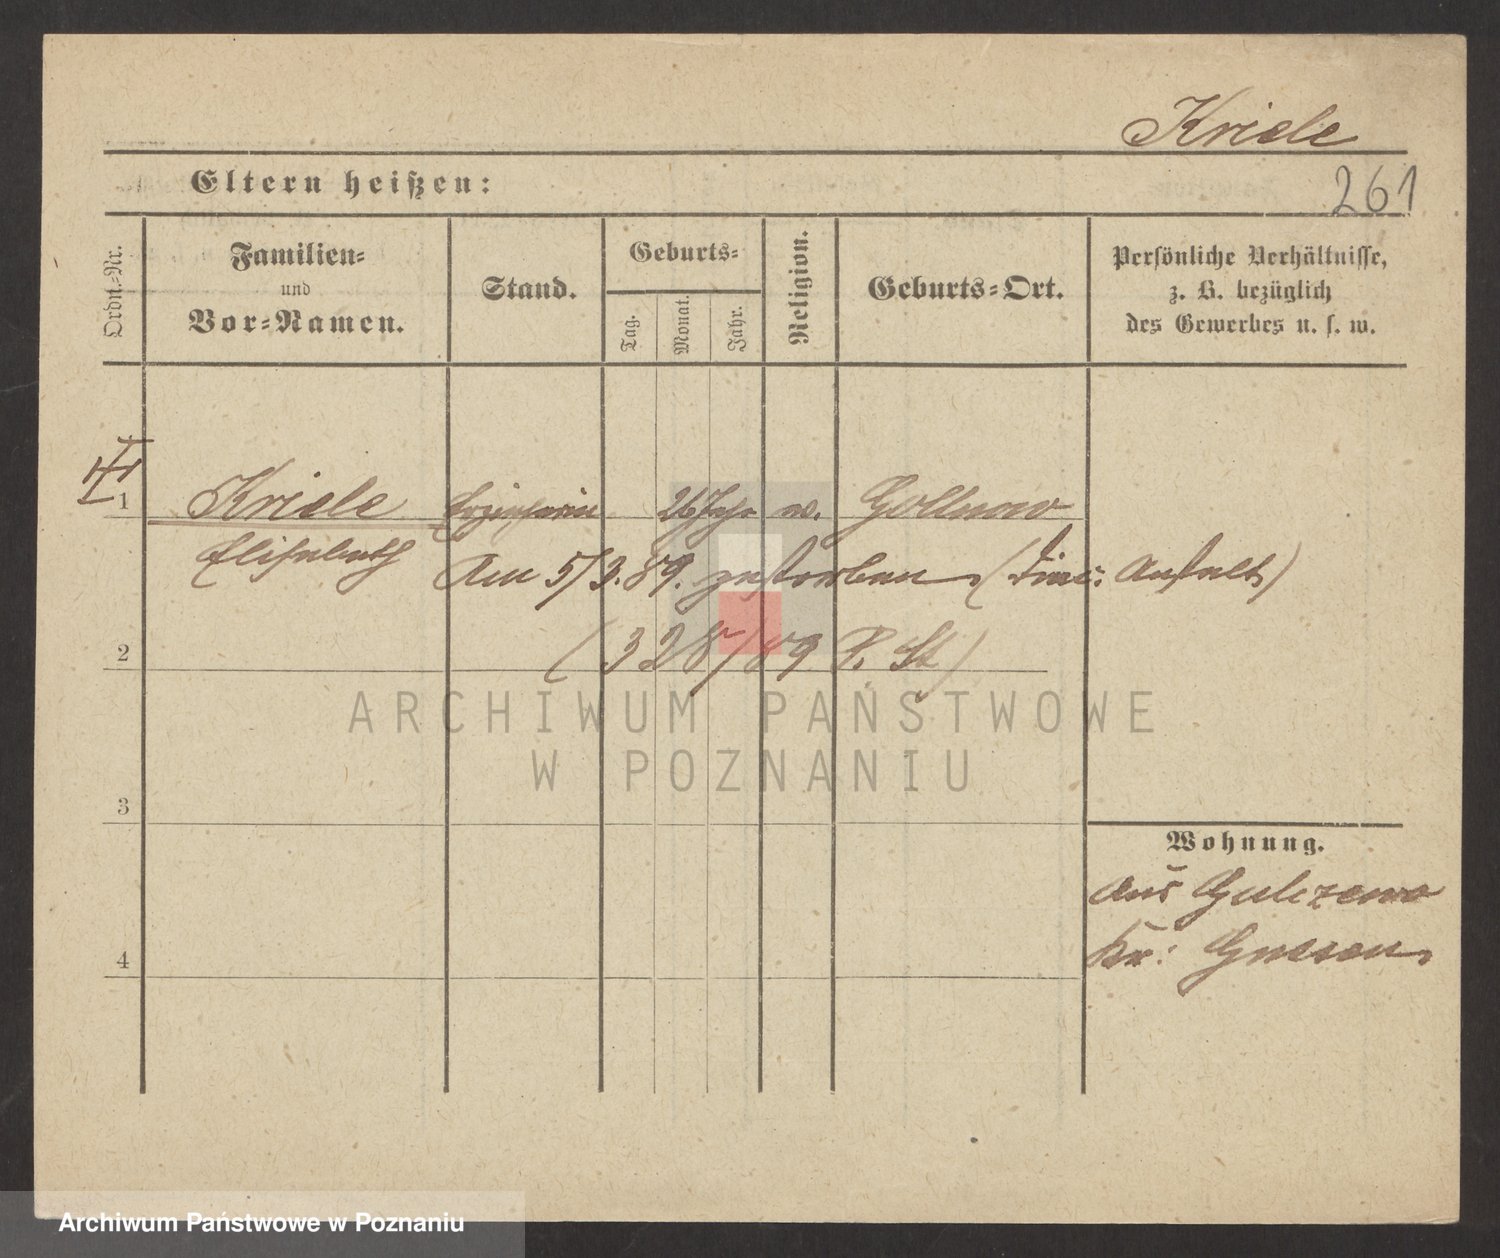 Kriele
Eltern heißen:
261
Ordn.-Nr.
Familien-
und
Vor-Namen.
Stand.
Geburts-
Tag.
Monat.
Jahr.
Religion.
Geburts-Ort.
Persönliche Verhältnisse,
z. B. bezüglich
des Gewerbes u. s. w.
1
Kriele Erzieherin 26 Jahr Gollnow
Elisabeth Am 5/3. 89. gestorben. ( Anstalt)
2
(328/89 P. St)
ARCHIWUM PAŃSTWOWE
W POZNANIU
3
Wohnung.
aus Gulczewo
Kr: Gnesen.
4
Archiwum Państwowe w Poznaniu